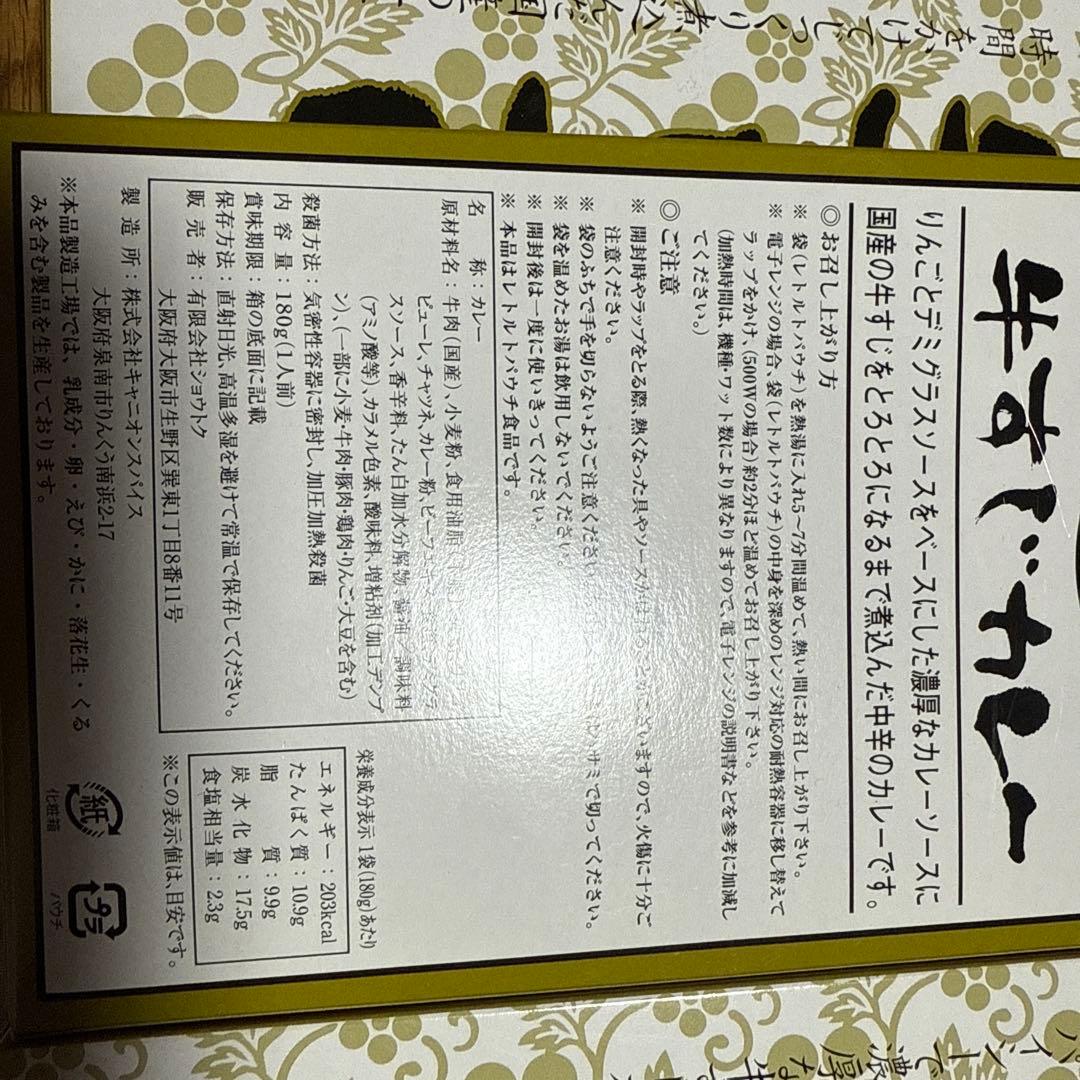 牛すじカレー
りんごとデミグラスソースをベースにした濃厚なカレーソースに
国産の牛すじをとろとろになるまで煮込んだ中辛のカレーです。
◎お召し上がり方
※ 袋(レトルトパウチ)を熱湯に入れ5〜7分間温めて、熱い間にお召し上がり下さい。
※ 電子レンジの場合、袋(レトルトパウチ)の中身を深めのレンジ対応の耐熱容器に移し替えて
ラップをかけ、(500Wの場合)約2分ほど温めてお召し上がり下さい。
(加熱時間は、機種・ワット数により異なりますので、電子レンジの説明書などを参考に加減し
てください。)
◎ご注意
※ 開封時やラップをとる際、熱くなった具やソースが
ございますので、火傷に十分ご
注意ください。
※ 袋のふちで手を切らないようご注意ください
ハサミで切ってください。
※ 袋を温めたお湯は飲用しないでください。
※ 開封後は一度に使いきってください。
※ 本品はレトルトパウチ食品です。
名 称:カレー
原材料名:牛肉(国産)、小麦粉、食用油脂
ピューレ、チャツネ、カレー粉、ビーフ
スソース、香辛料、たん白加水分解物、醤油/調味料
(アミノ酸等)、カラメル色素、酸味料、増粘剤(加工デンプ
ン)、(一部に小麦・牛肉・豚肉・鶏肉・りんご・大豆を含む)
殺菌方法:気密性容器に密封し、加圧加熱殺菌
内 容 量:180g(1人前)
賞味期限 箱の底面に記載
保存方法:直射日光、高温多湿を避けて常温で保存してください。
販 売 者:有限会社ショウトク
大阪府大阪市生野区巽東1丁目8番11号
製 造 所:株式会社キャニオンスパイス
大阪府泉南市りんくう南浜2-17
※本品製造工場では、乳成分・卵・えび・かに・落花生・くる
みを含む製品を生産しております。
栄養成分表示 1袋(180g)あたり
エネルギー:203kcal
たんぱく質:10.9g
脂 質:9.9g
炭 水 化 物:17.5g
食塩相当量:2.3g
※この表示値は、目安です。
紙
化粧箱
プラ
パウチ
時間
をかけ
てじっ
くり
煮
込
んだ
国産の